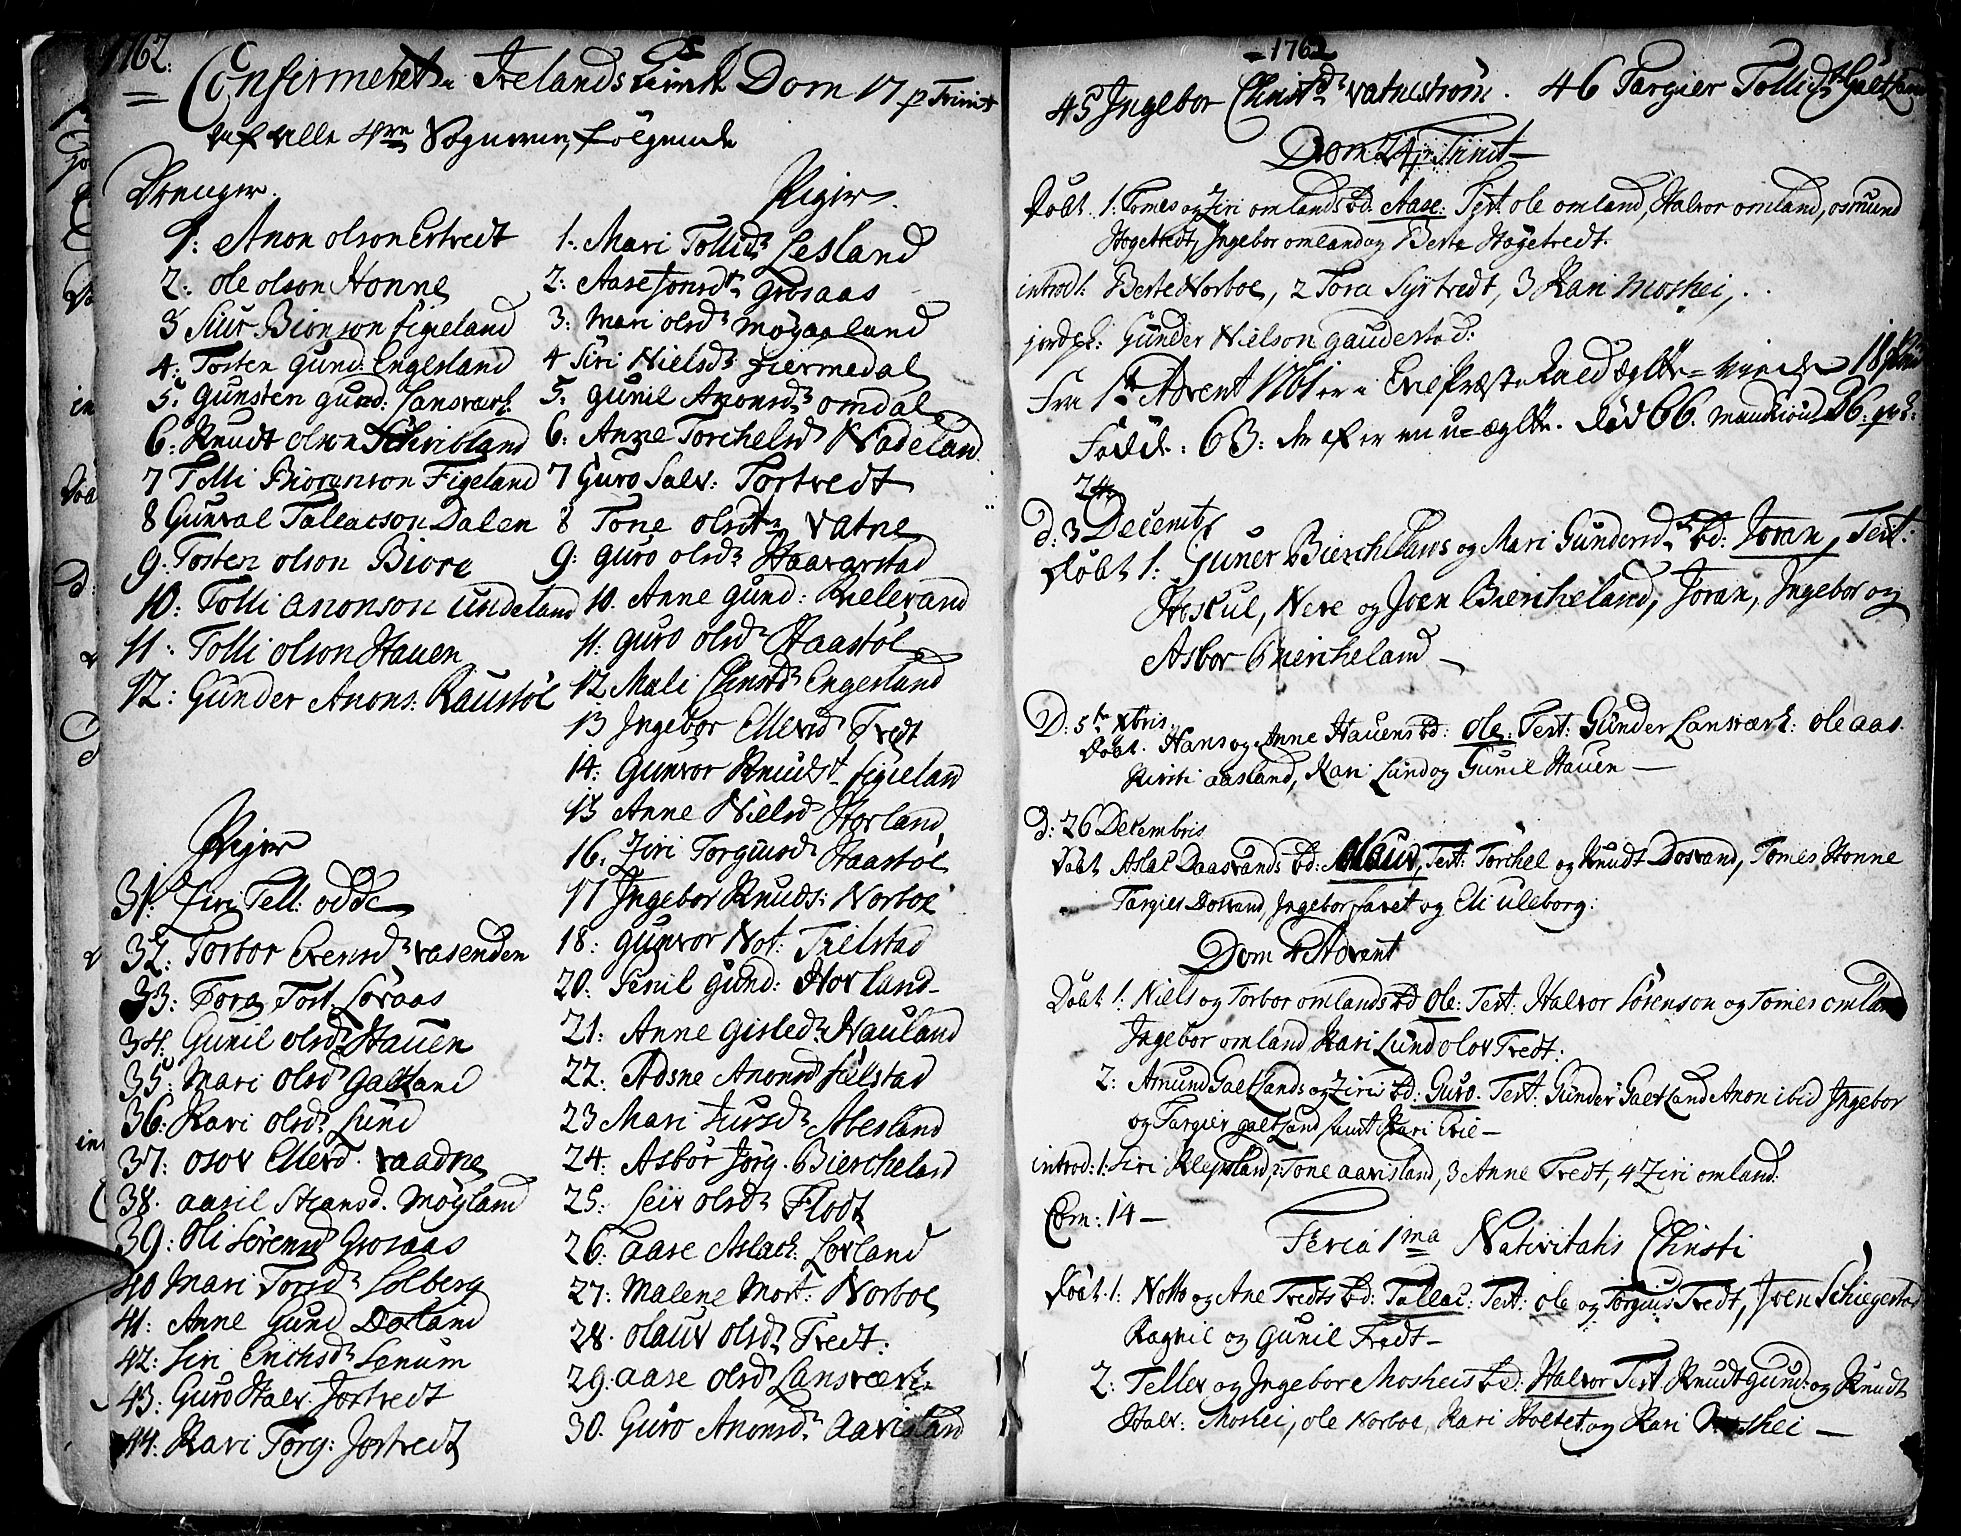 1762.
Confirmeret i Irelands Kirck Dom 17 p Trinit
af alle 4re Sognerne, følgende
Drenger.
1: Anon olson Ertvedt
2: ole olson Honne
3 Siur Bionson Figeland
4: Tosten Gund: Engesland
5: Gunsten Gund: Lansværk
6: Knudt olson Schribland
7 Tolli Biorenson Figeland
8 Gunval Taleacson Dalen
9. Tosten olson Biore
10: Tolli anonson Undeland
11: Tolli olson Hauen
12: Gunder Anons: Raustøl
Piger
31: Ziri Tell: odde
32: Torbor Evensd: vasenden
33: Tora Tost. Løvaas
34: Gunil olsd: Hauen
35: Mari olsd: Galteland
36: Kari olsd: Lund
37: osov Ellevd. vaadne
38. aasil Steansd. Møyland
39: oli Sørensd Grosaas
40 Mari Torsd: Solberg
41: Anne Gund Dosland
42: Siri Erichsd: Senum
43: Guro Halv: Jortvedt
44: Kari Torg: Jortvedt
Piger.
1. Mari Tollid: Lesland
2: Aase Jonsd: Grosaas
3: Mari olsd: Møgaaland
4 Siri Nielsd: Ziermedal
5. Gunil Anonsd: omdal
6: Anne Torchelsd Wadeland
7 Guro Salv: Tortvedt
8 Tone olsdt: vatne
9: Guro olsd: Haavarstad
10. Anne Gund: Kielevand
11: Guro olsd: Haastøl
12 Mali Christd: Engesland
13 Ingebor Ellevsd Tredt
14: Gunvor Knudsdt Figieland
15 Anne Nielsd Horland
16. Ziri Torgiusd: Haastøl
17 Ingebor Knuds: Norboe
18: Gunvor Not: Tielstad
20. Senil Gund: Hovland
21: Anne Gisled: Nauland
22: Adsne Anonsd Fielstad
23 Mari Siursd: Abesland
24: Asbor Jørg. Biercheland
25: Seiv olsd: Flodt
26. aase Aslach: Lovland
27: Malene Mort: Norboe
28. olauv olsd: Tredt.
29. aase olsd: Lansværk
30. Guro Anonsd: aavisland
1762
45 Ingebor Christd: vatnestrøm. 46 Targier Tollid: Galteland
Dom 24 p Trinit
Døbt 1: Tomes og Ziri omlands bd: Aase: Test: ole omland, Halvor omland, osmund
Høgetvedt, Ingebor omland og Berte Høgetvedt.
introd: Berte Norboe, 2 Tora Syrtvedt, 3 Kari Moshei,
jordf: Gunder Nielson gauderstad:
Fra 1te Advent 1761 er i Evie Præste Kield ægtte viede 18 par
Fødde: 63: der af er en u-ægtte. Død 66. Mandkiønd 26
D: 3 Decembr
Døbt 1: Guner Bierchelans og Mari Gundersd: bd: Joran, Test:
Hoskul, Nere og Joen Biercheland, Joran, Ingebor og
Asbor Biercheland
D: 5te Xbris
Døbt. Hans og Anne Hauens bd: ole: Test: Gunder Lansværk: ole aas
Kirsti aasland, Kari Lund og Gunil Hauen
d: 26 Decembris
Døbt Aslac Daasvands bd: olauv, Test: Torchel og Knudt Dosvand, Tomes Honne
Targier Dosvand, Ingebor favet og Eli uleborg:
Dom 4 Advent
Døbt 1: Niels og Torbor omlands bd ole: Test: Halvor Sørenson og Tomes omland
Ingebor omland Kari Lund olov Tredt:
2: Amund Galtelands og Ziris bd: Guro. Test: Gunder Galteland Anon ibid Ingebor
og Targier galteland samt Kari Evie
introd: 1: Siri Klepsland, 2 Tone aavisland, 3 Anne Tredt, 4 Ziri omland:
Com: 14
Feria 1ma Nativitatis Christi
Døbt: 1: Notto og Ane Tredts bd: Talleac: Test: ole og Torgius Tredt, Iven Schiegestad
Ragnil og Gunil Tredt
2: Tellev og Ingebor Mosheis bd: Halvor Test Knudt Gund: og Knudt
Halv: Moshei, ole Norboe, Kari Holtet og Kari Moshei